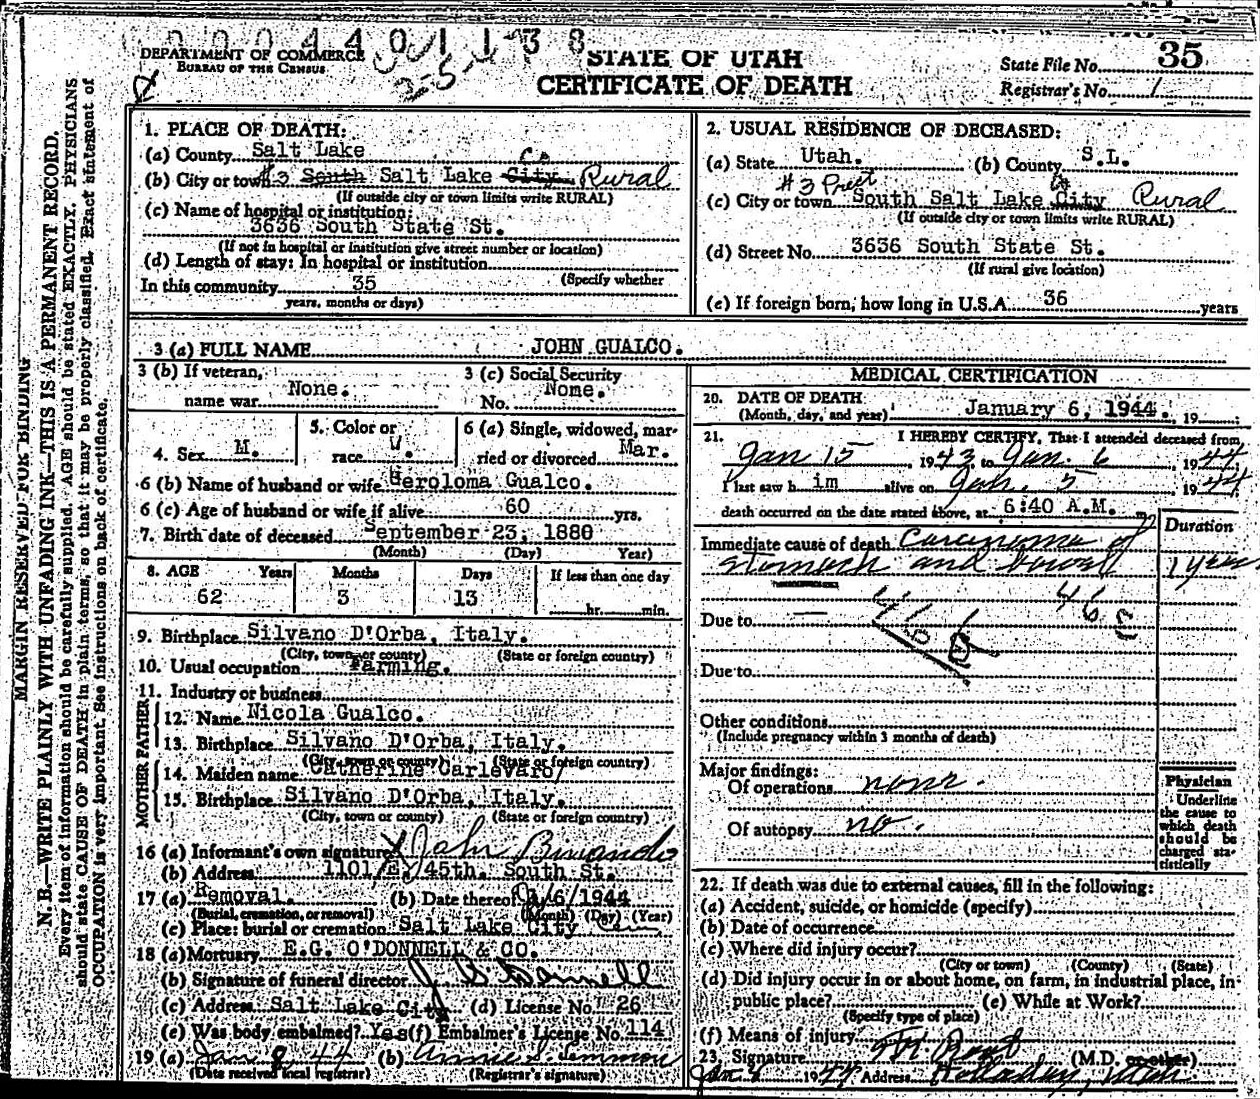 DEPARTMENT OF COMMERCE
BUREAU OF THE CENSUS
STATE OF UTAH
CERTIFICATE OF DEATH
State File No. 35
Registrar's No. 1
MARGIN RESERVED FOR BINDING
N. B.—WRITE PLAINLY WITH UNFADING INK—THIS IS A PERMANENT RECORD.
Every item of information should be carefully supplied. AGE should be stated EXACTLY. PHYSICIANS
should state CAUSE OF DEATH in plain terms, so that it may be properly classified. Exact statement of
OCCUPATION is very important. See instructions on back of certificate.
1. PLACE OF DEATH:
(a) County Salt Lake
(b) City or town #3 South Salt Lake City Co Rural
(If outside city or town limits write RURAL)
(c) Name of hospital or institution:
3636 South State St.
(If not in hospital or institution give street number or location)
(d) Length of stay: In hospital or institution
(Specify whether
In this community 35
years, months or days)
2. USUAL RESIDENCE OF DECEASED:
(a) State Utah. (b) County S.L.
#3 Prect
(c) City or town South Salt Lake City Co Rural
(If outside city or town limits write RURAL)
(d) Street No. 3636 South State St.
(If rural give location)
(e) If foreign born, how long in U.S.A. 36 years
3 (a) FULL NAME JOHN GUALCO.
3 (b) If veteran, name war None.
3 (c) Social Security No. None.
4. Sex M.
5. Color or race W.
6 (a) Single, widowed, married or divorced Mar.
6 (b) Name of husband or wife Geroloma Gualco.
6 (c) Age of husband or wife if alive 60 yrs.
7. Birth date of deceased September 23, 1880
(Month) (Day) Year)
8. AGE Years Months Days If less than one day
62 3 13 hr. min.
9. Birthplace Silvano D'Orba, Italy.
(City, town or county) (State or foreign country)
10. Usual occupation Farming.
11. Industry or business
FATHER
12. Name Nicola Gualco.
13. Birthplace Silvano D'Orba, Italy.
(City, town or county) (State or foreign country)
MOTHER
14. Maiden name Catherine Carlevaro/
15. Birthplace Silvano D'Orba, Italy.
(City, town or county) (State or foreign country)
16 (a) Informant's own signature X John
(b) Address 1101/E./45th. South St.
17 (a) Removal. (b) Date thereof 1/6/1944
(Burial, cremation, or removal) (Month) (Day) (Year)
(c) Place: burial or cremation Salt Lake City Cem
18 (a) Mortuary E.G. O'DONNELL & CO.
(b) Signature of funeral director O'Donnell
(c) Address Salt Lake City (d) License No. 26
(e) Was body embalmed? Yes (f) Embalmer's License No. 114
19 (a) Jan 8 44 (b) Annie S.
(Date received local registrar) (Registrar's signature)
MEDICAL CERTIFICATION
20. DATE OF DEATH
(Month, day, and year) January 6, 1944. 19
21. I HEREBY CERTIFY, That I attended deceased from
Jan 15, 1943, to Jan. 6 1944
I last saw him alive on Jan. 5 1944
death occurred on the date stated above, at 6:40 A.M. m.
Duration
Immediate cause of death Carcinoma of
stomach and bowel 1 year
46
Due to
Due to
Other conditions
(Include pregnancy within 3 months of death)
Major findings:
Of operations none.
Of autopsy no.
Physician
Underline
the cause to
which death
should be
charged sta-
tistically
22. If death was due to external causes, fill in the following:
(a) Accident, suicide, or homicide (specify)
(b) Date of occurrence
(c) Where did injury occur?
(City or town) (County) (State)
(d) Did injury occur in or about home, on farm, in industrial place, in-
public place? (e) While at Work?
(Specify type of place)
(f) Means of injury
23. Signature (M.D. or other)
Jan 6 1944 Address Holladay, Utah